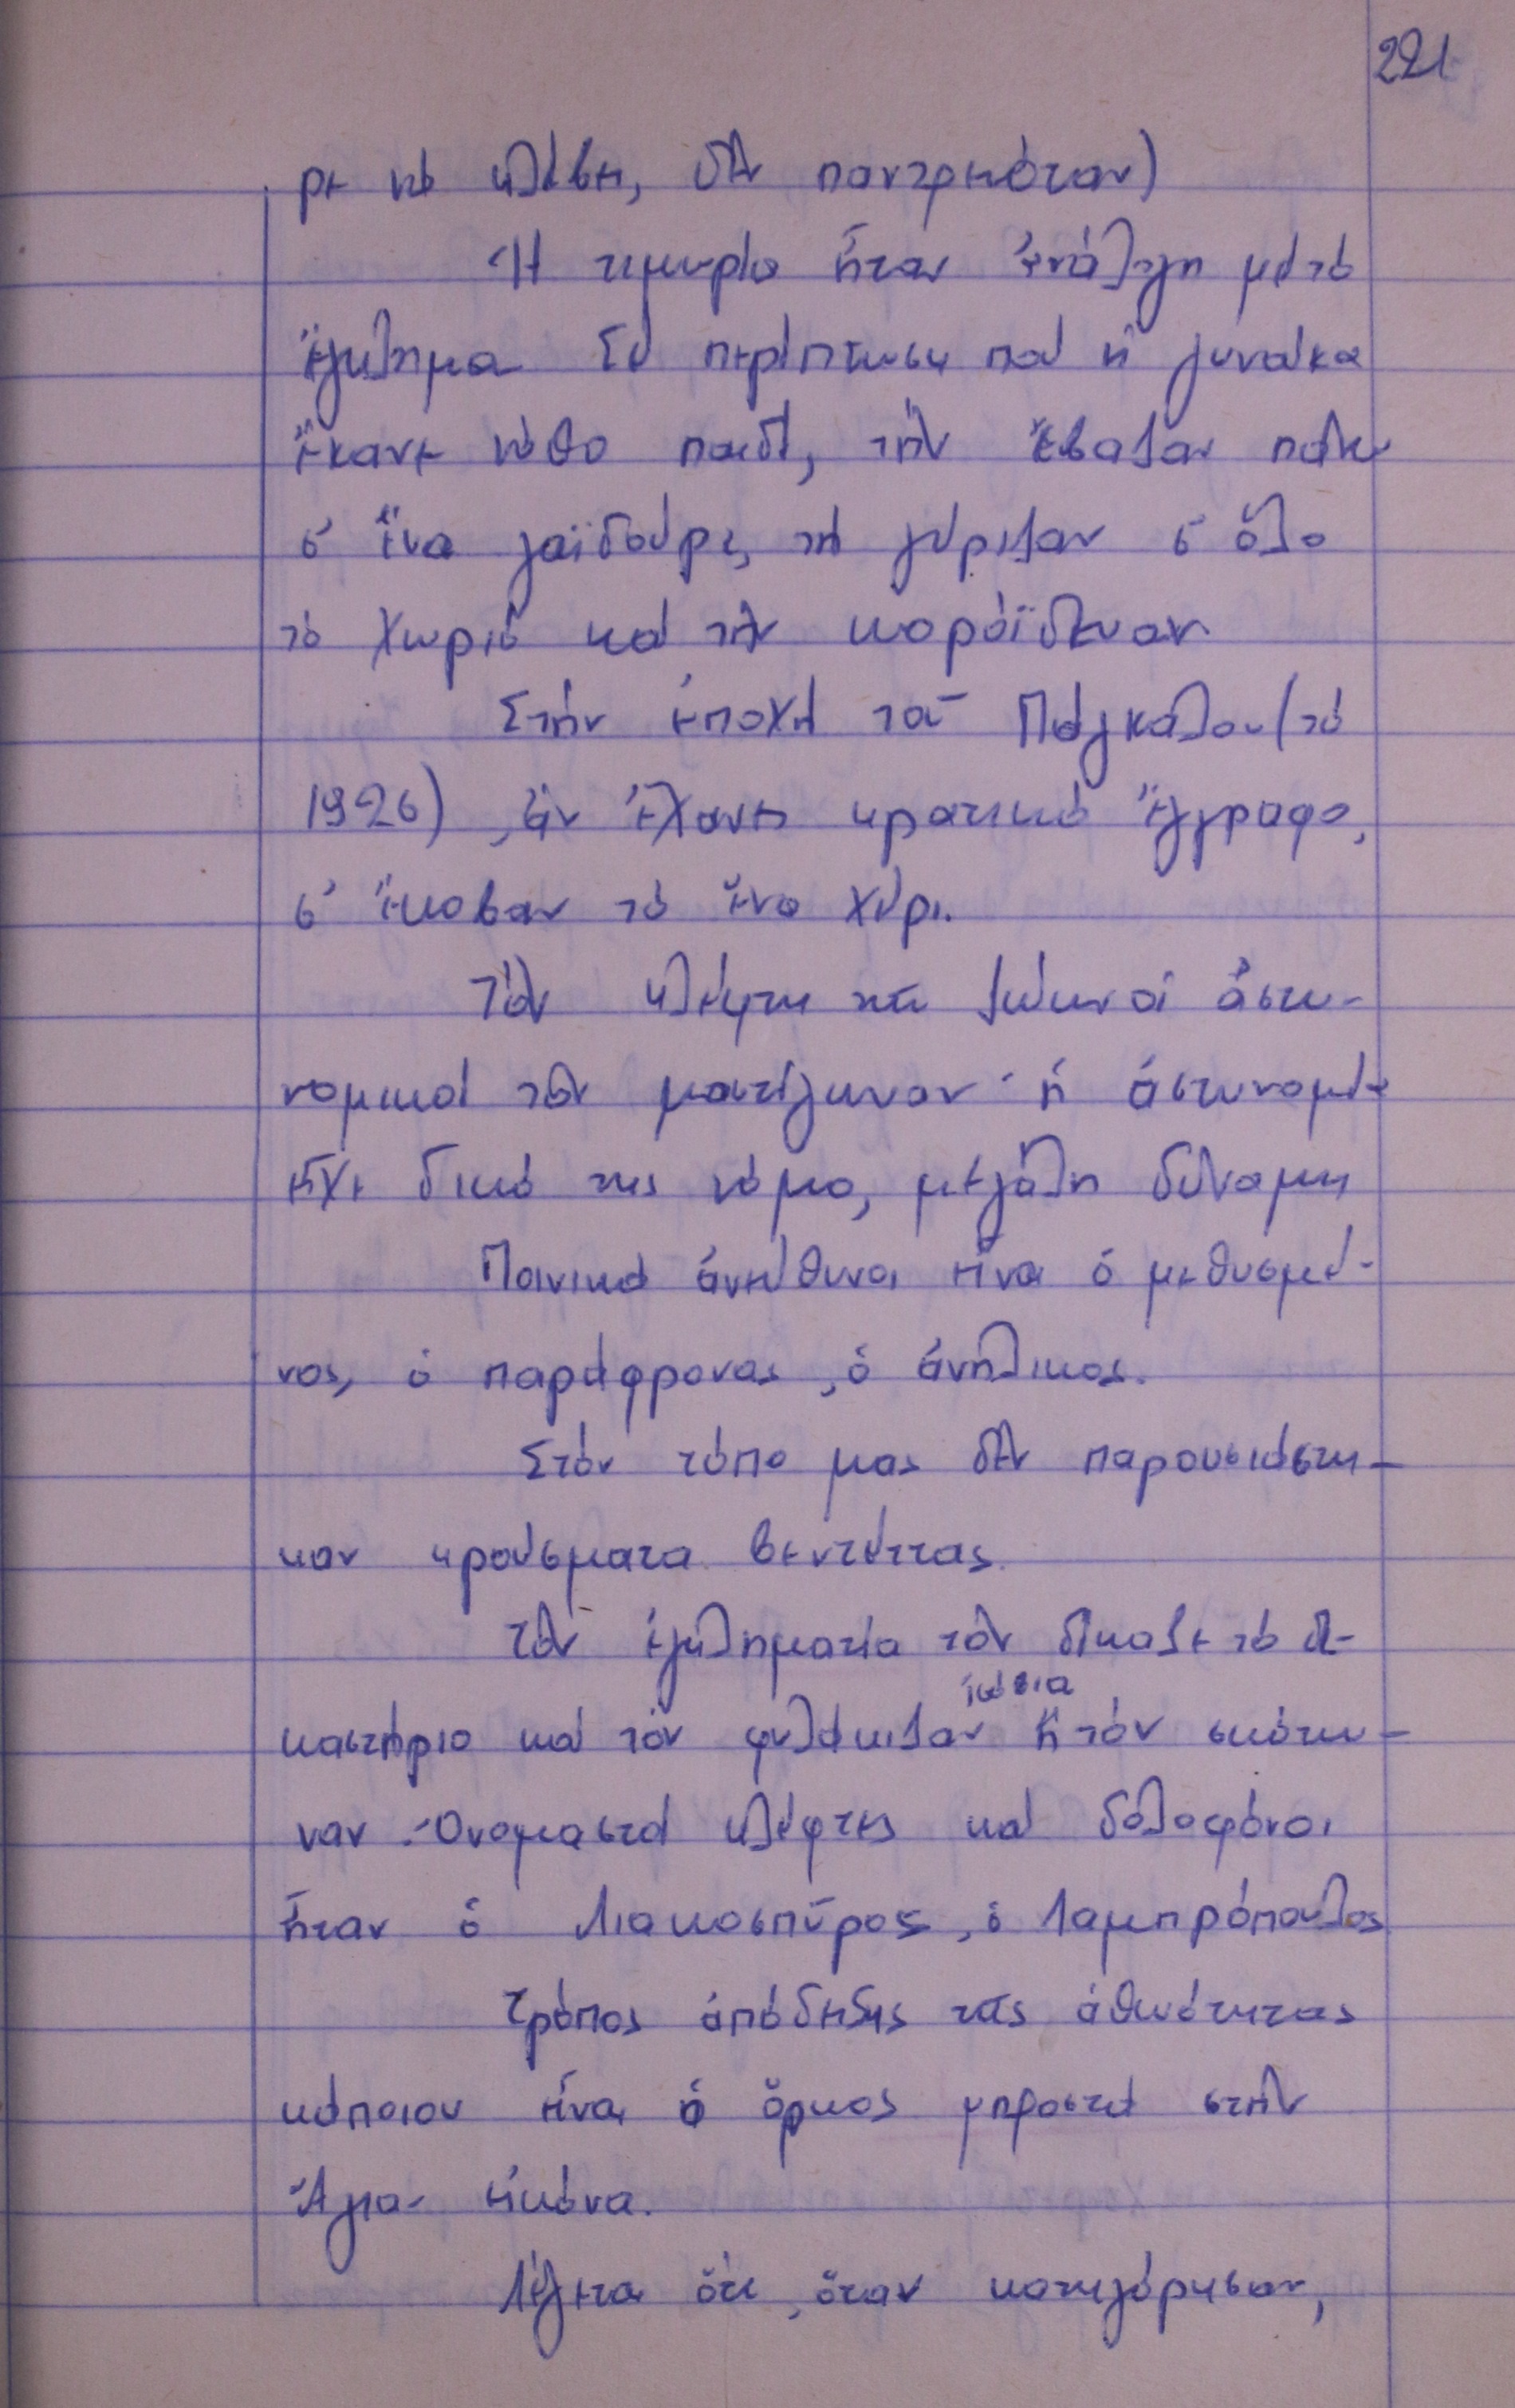 221
ρε νά κλέβει, δέν παντρευόταν)
Ἡ τιμωρία ἦταν ἀνάλογη μέ τό
ἔγκλημα. Σέ περίπτωση πού ἡ γυναίκα
ἔκανε νόθο παιδί, τήν ἔβαζαν πάνω
σ' ἕνα γαϊδούρι, τή γύριζαν σ' ὅλο
τό χωριό καί τήν κορόϊδευαν
Στήν ἐποχή τοῦ Πάγκαλου (τό
1926), ἄν ἔχανες κρατικό ἔγγραφο,
σ' ἔκοβαν τό ἕνα χέρι.
Τόν κλέφτη καί ζώων οἱ ἀστυ-
νομικοί τόν μαστίγωναν· ἡ ἀστυνομία
εἶχε δικό της νόμο, μεγάλη δύναμη
Ποινικά ἀνεύθυνοι εἶναι ὁ μεθυσμέ-
νος, ὁ παράφρονας, ὁ ἀνήλικος.
Στόν τόπο μας δέν παρουσιάστη-
καν κρούσματα βεντέττας.
Τόν ἐγκληματία τόν δίκαζε τό δι-
ἰσόβια
καστήριο καί τόν φυλάκιζαν ἤ τόν σκότω-
ναν. Ὀνομαστοί κλέφτες καί δολοφόνοι
ἦταν ὁ Λιακοσπύρος, ὁ Λαμπρόπουλος
Τρόπος ἀπόδειξης τῆς ἀθωότητας
κάποιου εἶναι ὁ ὅρκος μπροστά στήν
Ἁγία εἰκόνα.
Λέγεται ὅτι, ὅταν κατηγόρησαν,